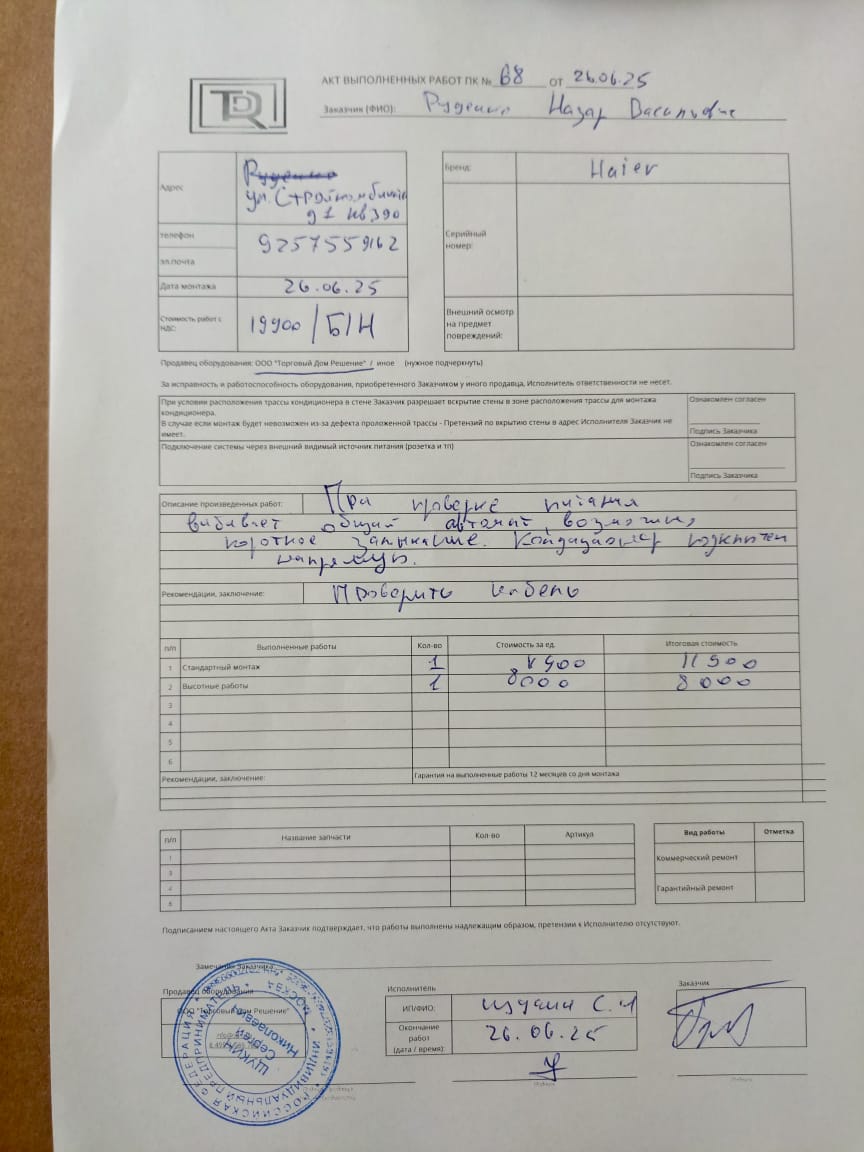 TDR
АКТ ВЫПОЛНЕННЫХ РАБОТ ПК № 68 от 26.06.25
Заказчик (ФИО): Руденко Назар Васильевич
Адрес
Руденко
ул. Стройкомбината
д 1 кв 390
телефон 9257559162
эл.почта
Дата монтажа 26.06.25
Стоимость работ с НДС: 19900 / Б/Н
Бренд: Haier
Серийный номер:
Внешний осмотр на предмет повреждений:
Продавец оборудования: ООО "Торговый Дом Решение" / иное (нужное подчеркнуть)
За исправность и работоспособность оборудования, приобретенного Заказчиком у иного продавца, Исполнитель ответственности не несет.
При условии расположения трассы кондиционера в стене Заказчик разрешает вскрытие стены в зоне расположения трассы для монтажа
кондиционера.
В случае если монтаж будет невозможен из-за дефекта проложенной трассы - Претензий по вкрытию стены в адрес Исполнителя Заказчик не
имеет.
Ознакомлен согласен
Подпись Заказчика
Подключение системы через внешний видимый источник питания (розетка и тп)
Ознакомлен согласен
Подпись Заказчика
Описание произведенных работ: При проверке питания
выбивает общий автомат, возможно,
короткое замыкание. Кондиционер подключен
напрямую.
Рекомендации, заключение: Проверить кабель
п/п Выполненные работы Кол-во Стоимость за ед. Итоговая стоимость
1 Стандартный монтаж 1 11900 11900
2 Высотные работы 1 8000 8000
3
4
5
6
Рекомендации, заключение: Гарантия на выполненные работы 12 месяцев со дня монтажа
п/п Название запчасти Кол-во Артикул
1
3
4
5
Вид работы Отметка
Коммерческий ремонт
Гарантийный ремонт
Подписанием настоящего Акта Заказчик подтверждает, что работы выполнены надлежащим образом, претензии к Исполнителю отсутствуют.
Замечания Заказчика
Продавец оборудования
ООО "Торговый Дом Решение"
РОССИЙСКАЯ ФЕДЕРАЦИЯ
ИНДИВИДУАЛЬНЫЙ ПРЕДПРИНИМАТЕЛЬ
МОСКВА
ЩУКИН
Сергей
Николаевич
Исполнитель
ИП/ФИО: С.Н
Окончание работ (дата / время): 26.06.25
Заказчик